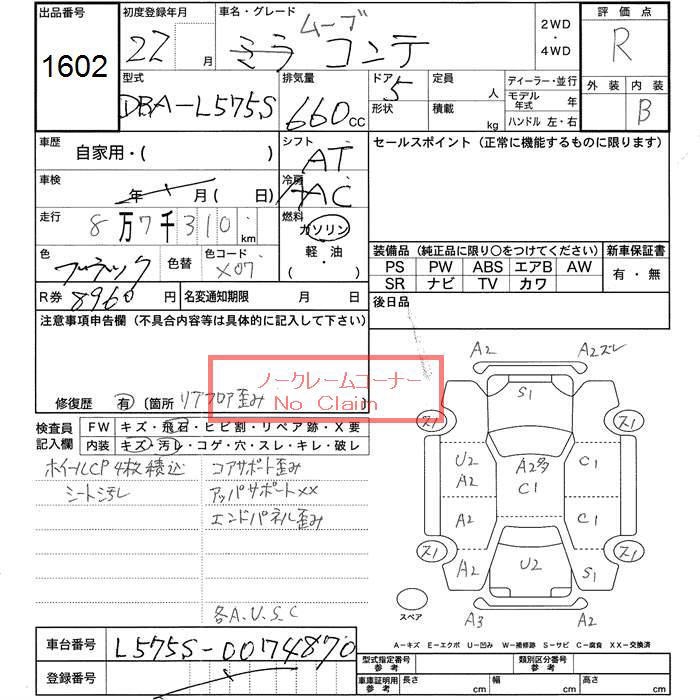 出品番号 初度登録年月 車名・グレード 2WD・4WD 評価点
1602 22 月 ムーブ コンテ R
型式 排気量 ドア 定員 ディーラー・並行 外装 内装
DBA-L575S 660cc 5 人 モデル年式 年 B
形状 積載 kg ハンドル 左・右
車歴 シフト セールスポイント (正常に機能するものに限ります)
自家用・( ) AT
車検 冷房
年 月 ( 日) AAC
走行 燃料
8万7千310km ガソリン
色 色替 色コード 軽・油
ブラック X07 ( ・ )
装備品 (純正品に限り〇をつけてください) 新車保証書
PS PW ABS エアB AW 有・無
SR ナビ TV カワ
R券 8960円 名変通知期限 月 日 後日品
注意事項申告欄 (不具合内容等は具体的に記入して下さい)
ノークレームコーナー
No Claim
修復歴 有 〔箇所 リアフロア歪み 〕
検査員記入欄 FW キズ・飛石・ヒビ割・リペア跡・X要
内装 キズ・汚レ・コゲ・穴・スレ・キレ・破レ
ホイールCP4枚積込 コアサポート歪み
シート汚レ アッパサポートXX
エンドパネル歪み
各A.U.S.C
A2 A2ズレ
S1
ス1 ス1
U2 A2 A2多 C1 C1
A2 C1
ス1 ス1
A2 U2 S1
スペア A3 A2
A-キズ E-エクボ U-凹み W-補修跡 S-サビ C-腐食 XX-交換済
車台番号 L575S-0074870
登録番号
型式指定番号 参考 類別区分番号 参考
車庫証明用 参考 長さ cm 幅 cm 高さ cm